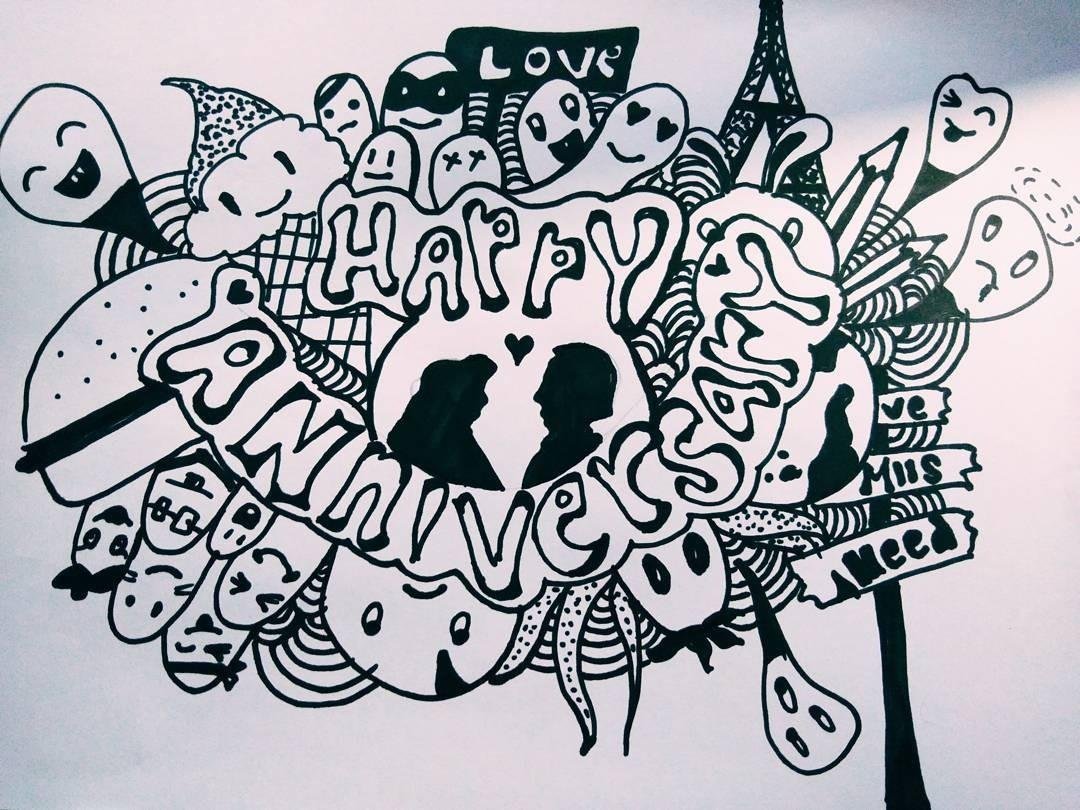 LOVe
HAPPY
ANNiVeRSARY
ve
Miis